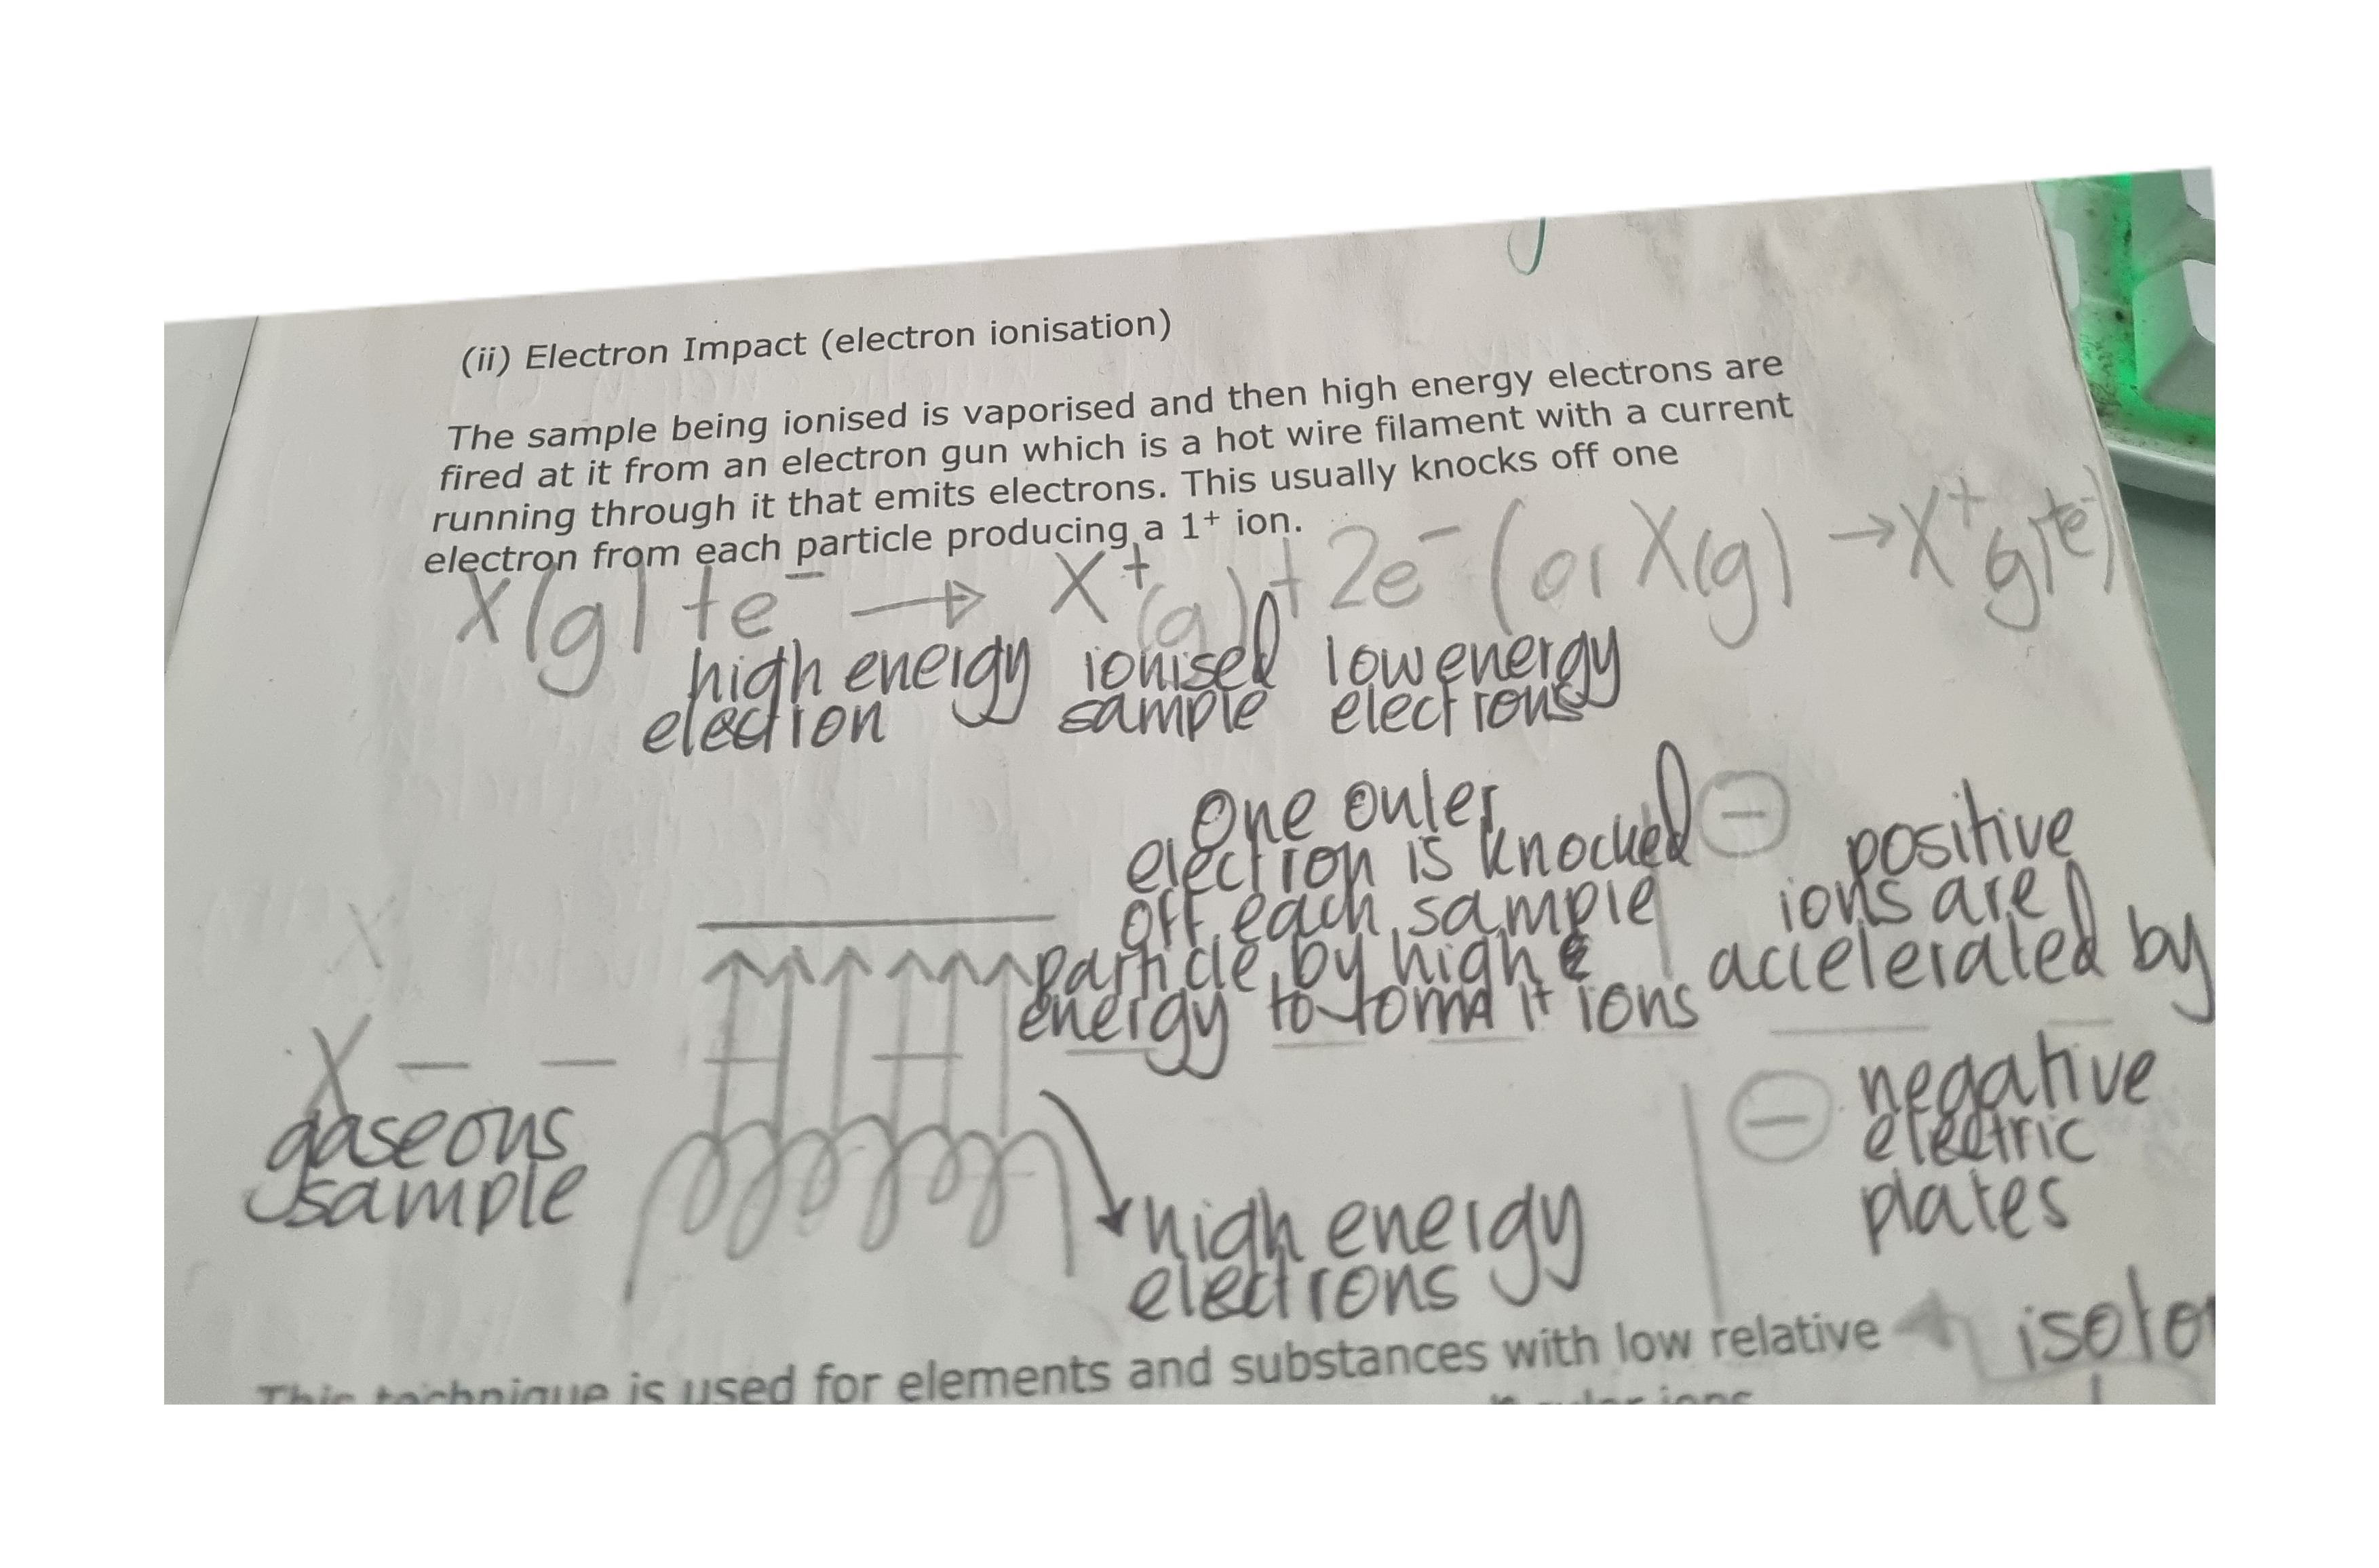 (ii) Electron Impact (electron ionisation)
The sample being ionised is vaporised and then high energy electrons are
fired at it from an electron gun which is a hot wire filament with a current
running through it that emits electrons. This usually knocks off one
electron from each particle producing a 1⁺ ion.
X(g) + e⁻ → X⁺(g) + 2e⁻ (or X(g) → X⁺(g) + e⁻)
high energy
electron
ionised
sample
low energy
electrons
One outer
electron is knocked
off each sample
particle by high
energy to form 1+ ions
⊖
positive
ions are
accelerated by
⊖ negative
electric
plates
X
X
gaseous
sample
high energy
electrons
This technique is used for elements and substances with low relative